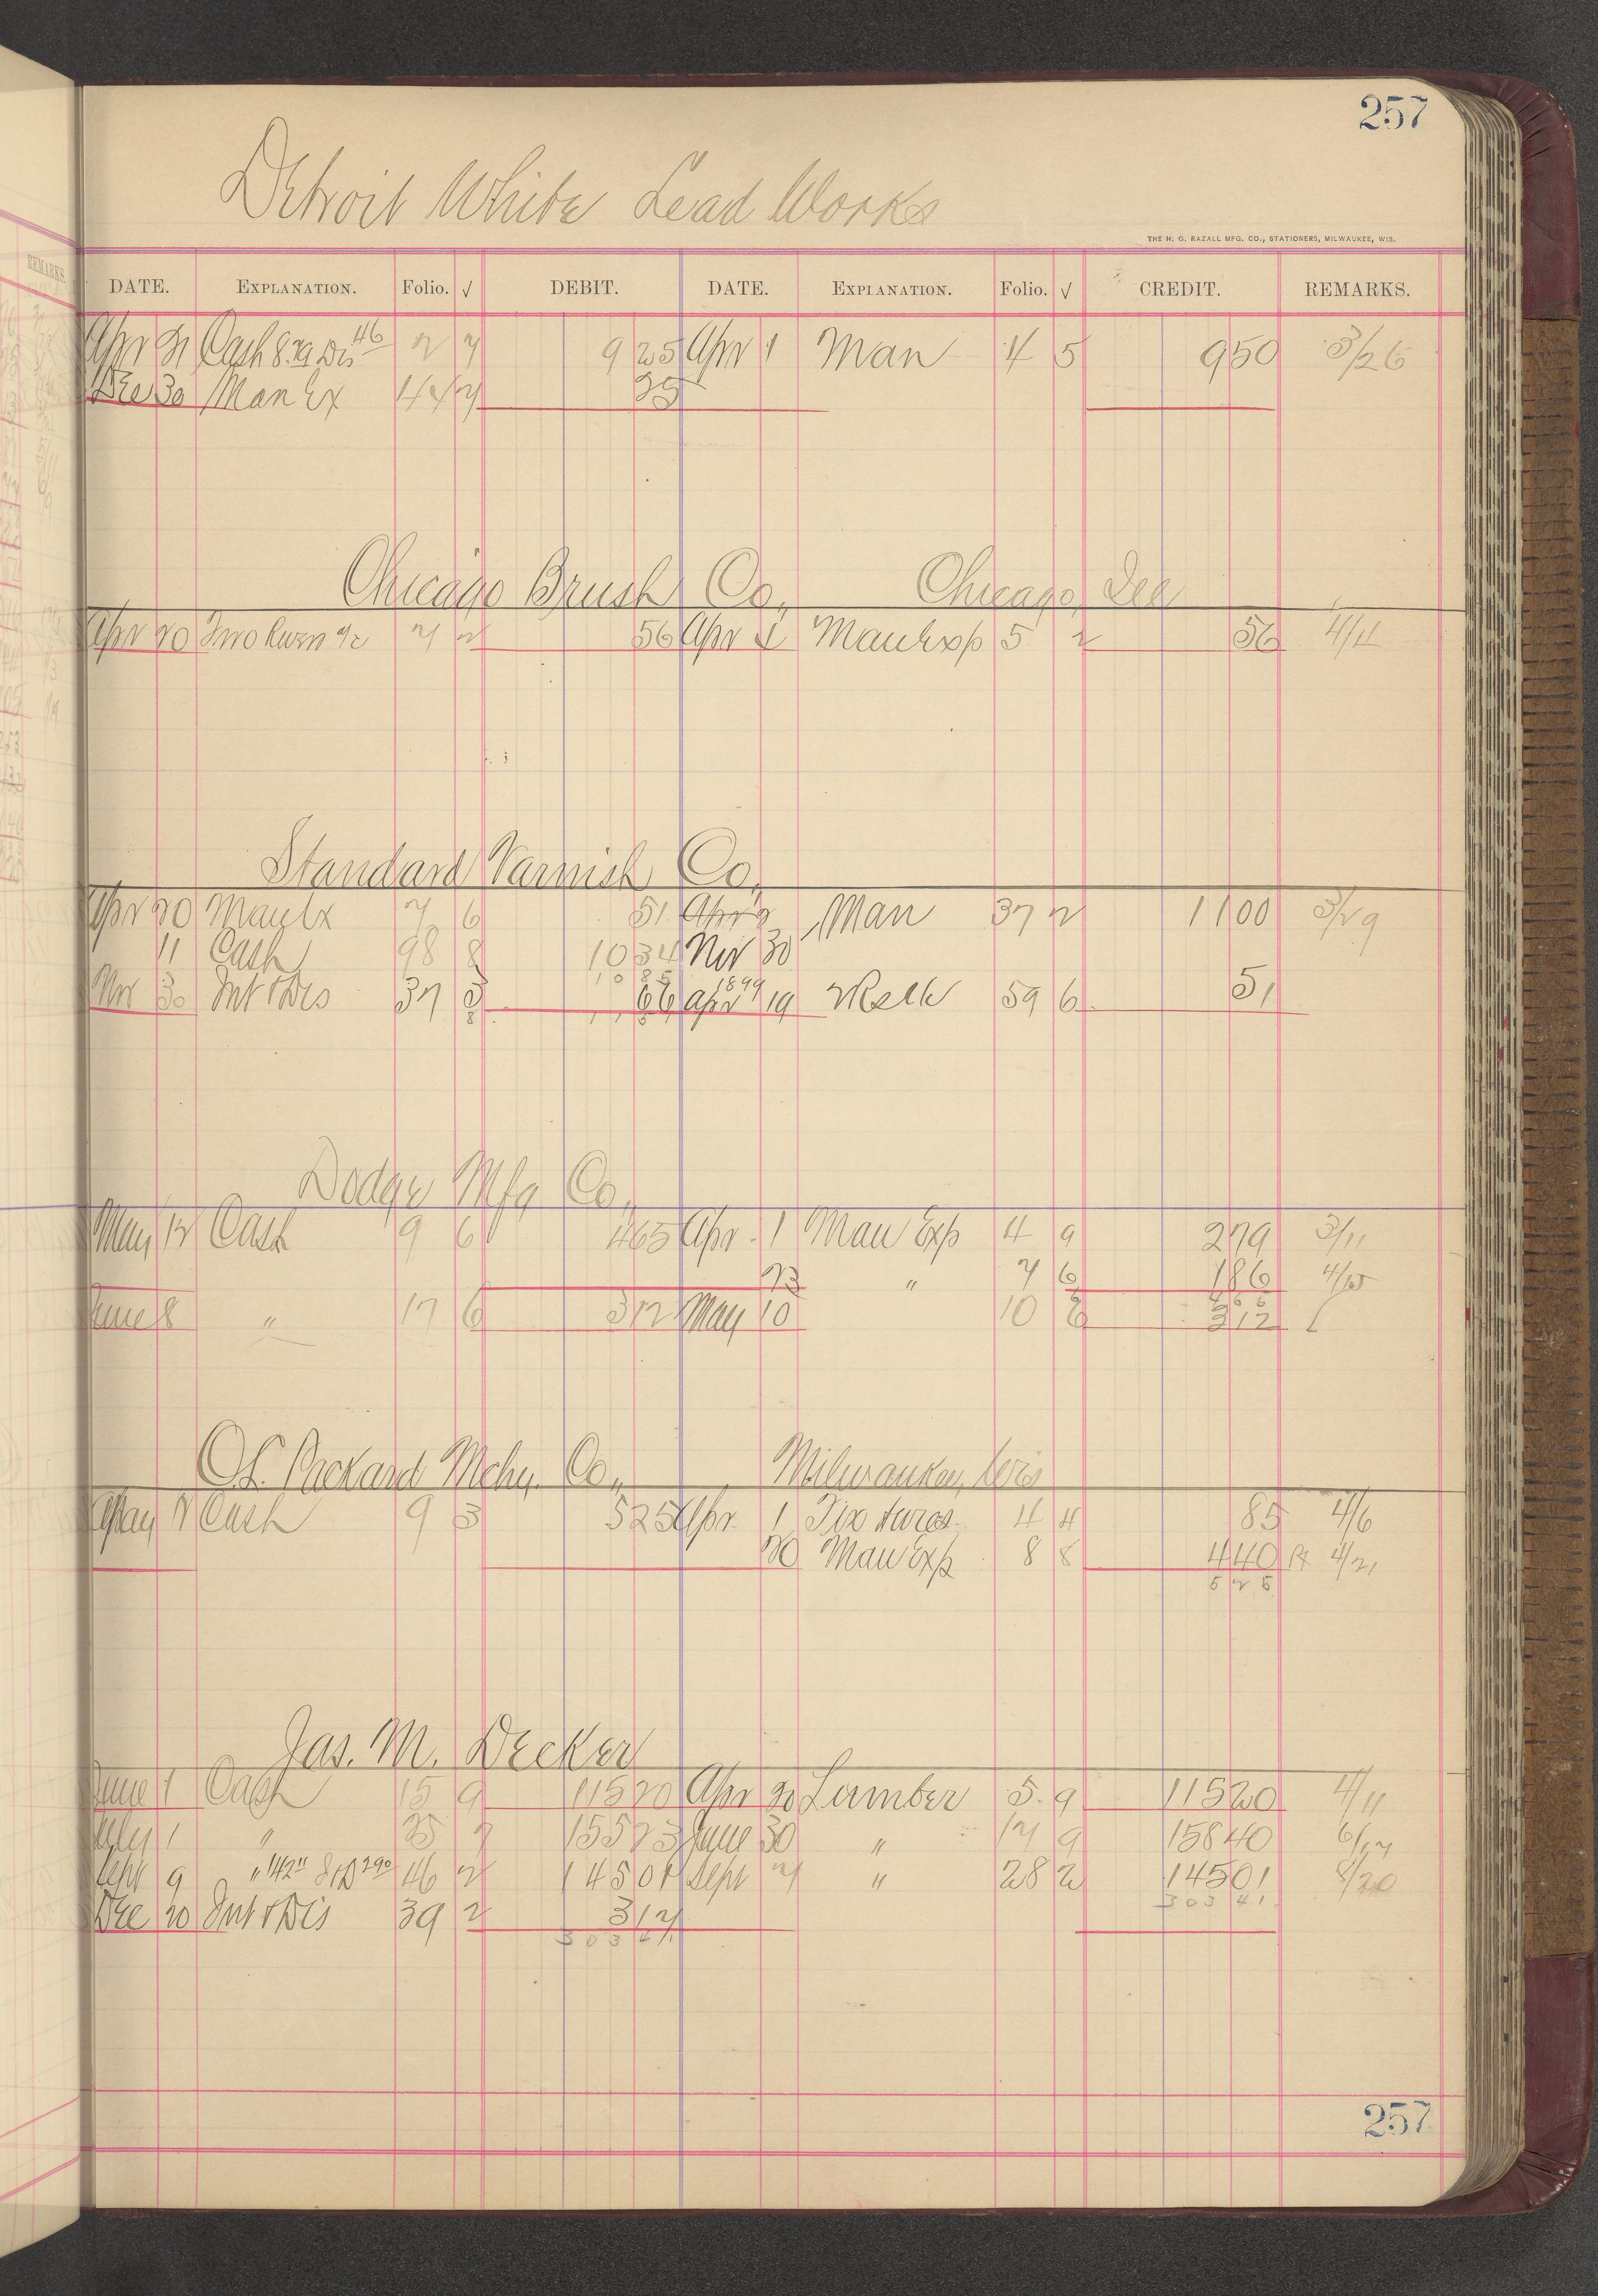 257
Detroit White Lead Works
THE H. G. RAZALL MFG. CO., STATIONERS, MILWAUKEE, WIS.
DATE. EXPLANATION. Folio. √ DEBIT. DATE. EXPLANATION. Folio. √ CREDIT. REMARKS.
Apr 21 Cash Dis 46 2 7 9 25 Apr 1 Man 4 5 9 50 3/26
Dec 30 Man Ex 25
Chicago Brush Co., Chicago, Ill
Apr 20 7 2 56 Apr 1 Man Exp 5 2 56 4/4
Standard Varnish Co.,
Apr 20 Man Ex 7 6 51 Apr 2 Man 37 2 11 00 3/29
11 Cash 98 8 10 34 Nov 30
10 85 1899
Nov 30 Int & Dis 37 3 66 Apr 19 59 6 51
Dodge Mfg Co.,
May 12 Cash 9 6 4 65 Apr 1 Man Exp 4 9 2 79 3/11
23 " 7 6 1 86 4/15
4 6 5
June 8 " 17 6 3 12 May 10 10 6 3 12
O.L. Packard Mchy. Co., Milwaukee, Wis
May 12 Cash 9 3 5 25 Apr 1 Fixtures 4 4 85 4/6
20 Man Exp 8 8 4 40 4/21
5 2 5
Jas. M. Decker
June 1 Cash 15 9 115 20 Apr 20 Lumber 5 9 115 20 4/11
July 1 " 25 7 155 23 June 30 " 17 9 158 40 6/17
Sept 9 " 46 2 145 01 Sept 7 " 28 2 145 01 8/20
303 41
Dec 20 Int & Dis 39 2 3 17
303 41
257